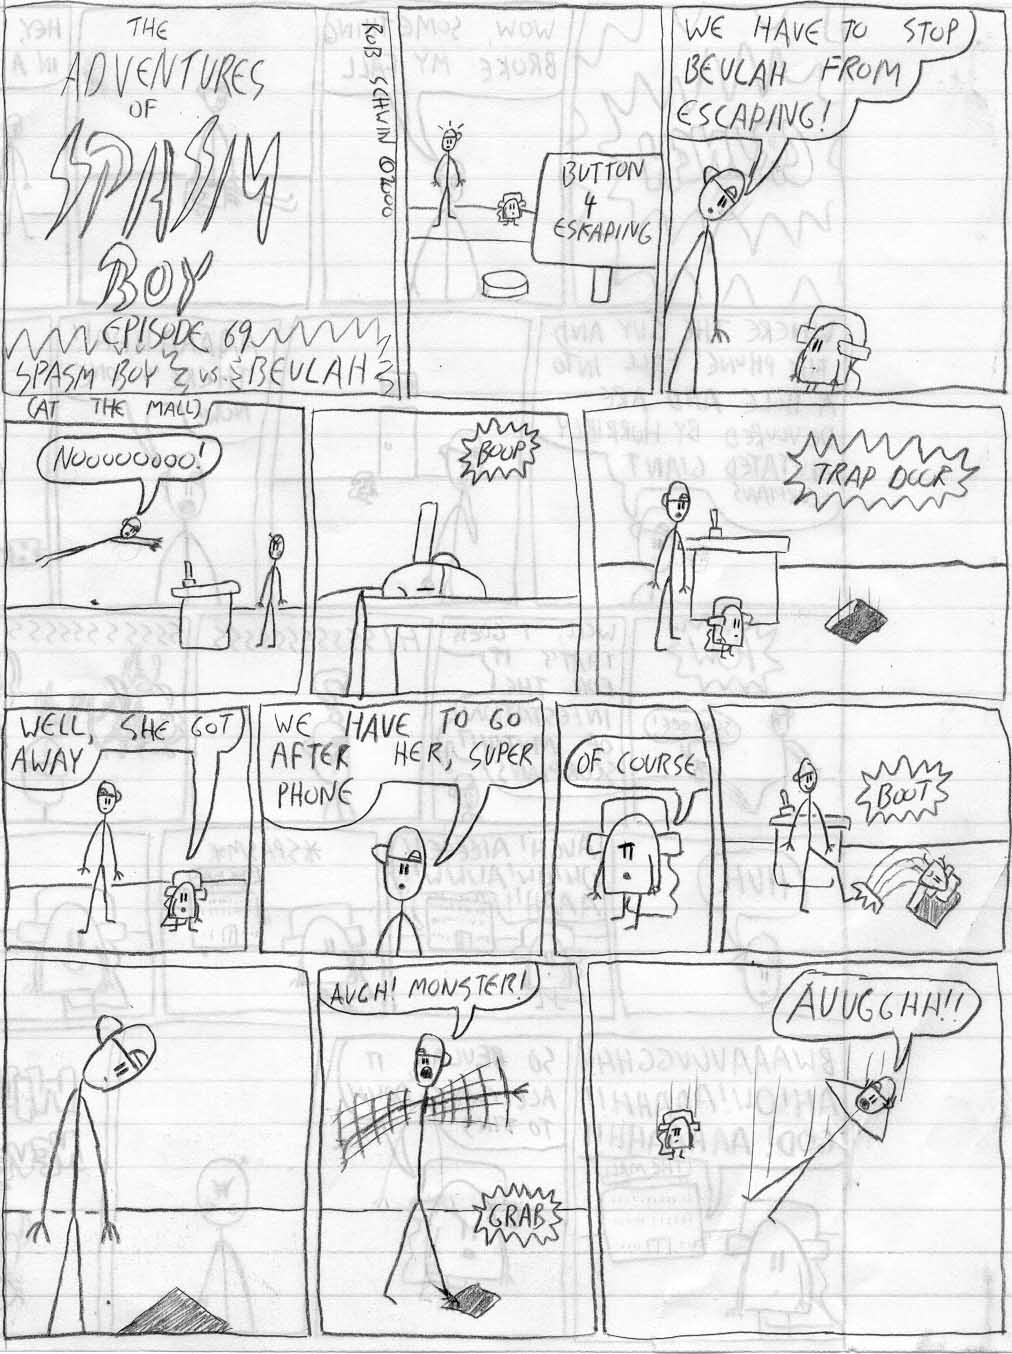 THE
ADVENTURES
OF
SPASM
BOY
EPISODE 69
SPASM BOY VS. BEULAH
ROB SCHWIN ©2000
BUTTON
4
ESKAPING
WE HAVE TO STOP
BEULAH FROM
ESCAPING!
(AT THE MALL)
NOOOOOOOO!
BOOP
TRAP DOOR
WELL, SHE GOT
AWAY
WE HAVE TO GO
AFTER HER, SUPER
PHONE
OF COURSE
BOOT
AUGH! MONSTER!
GRAB
AUUGGHH!!